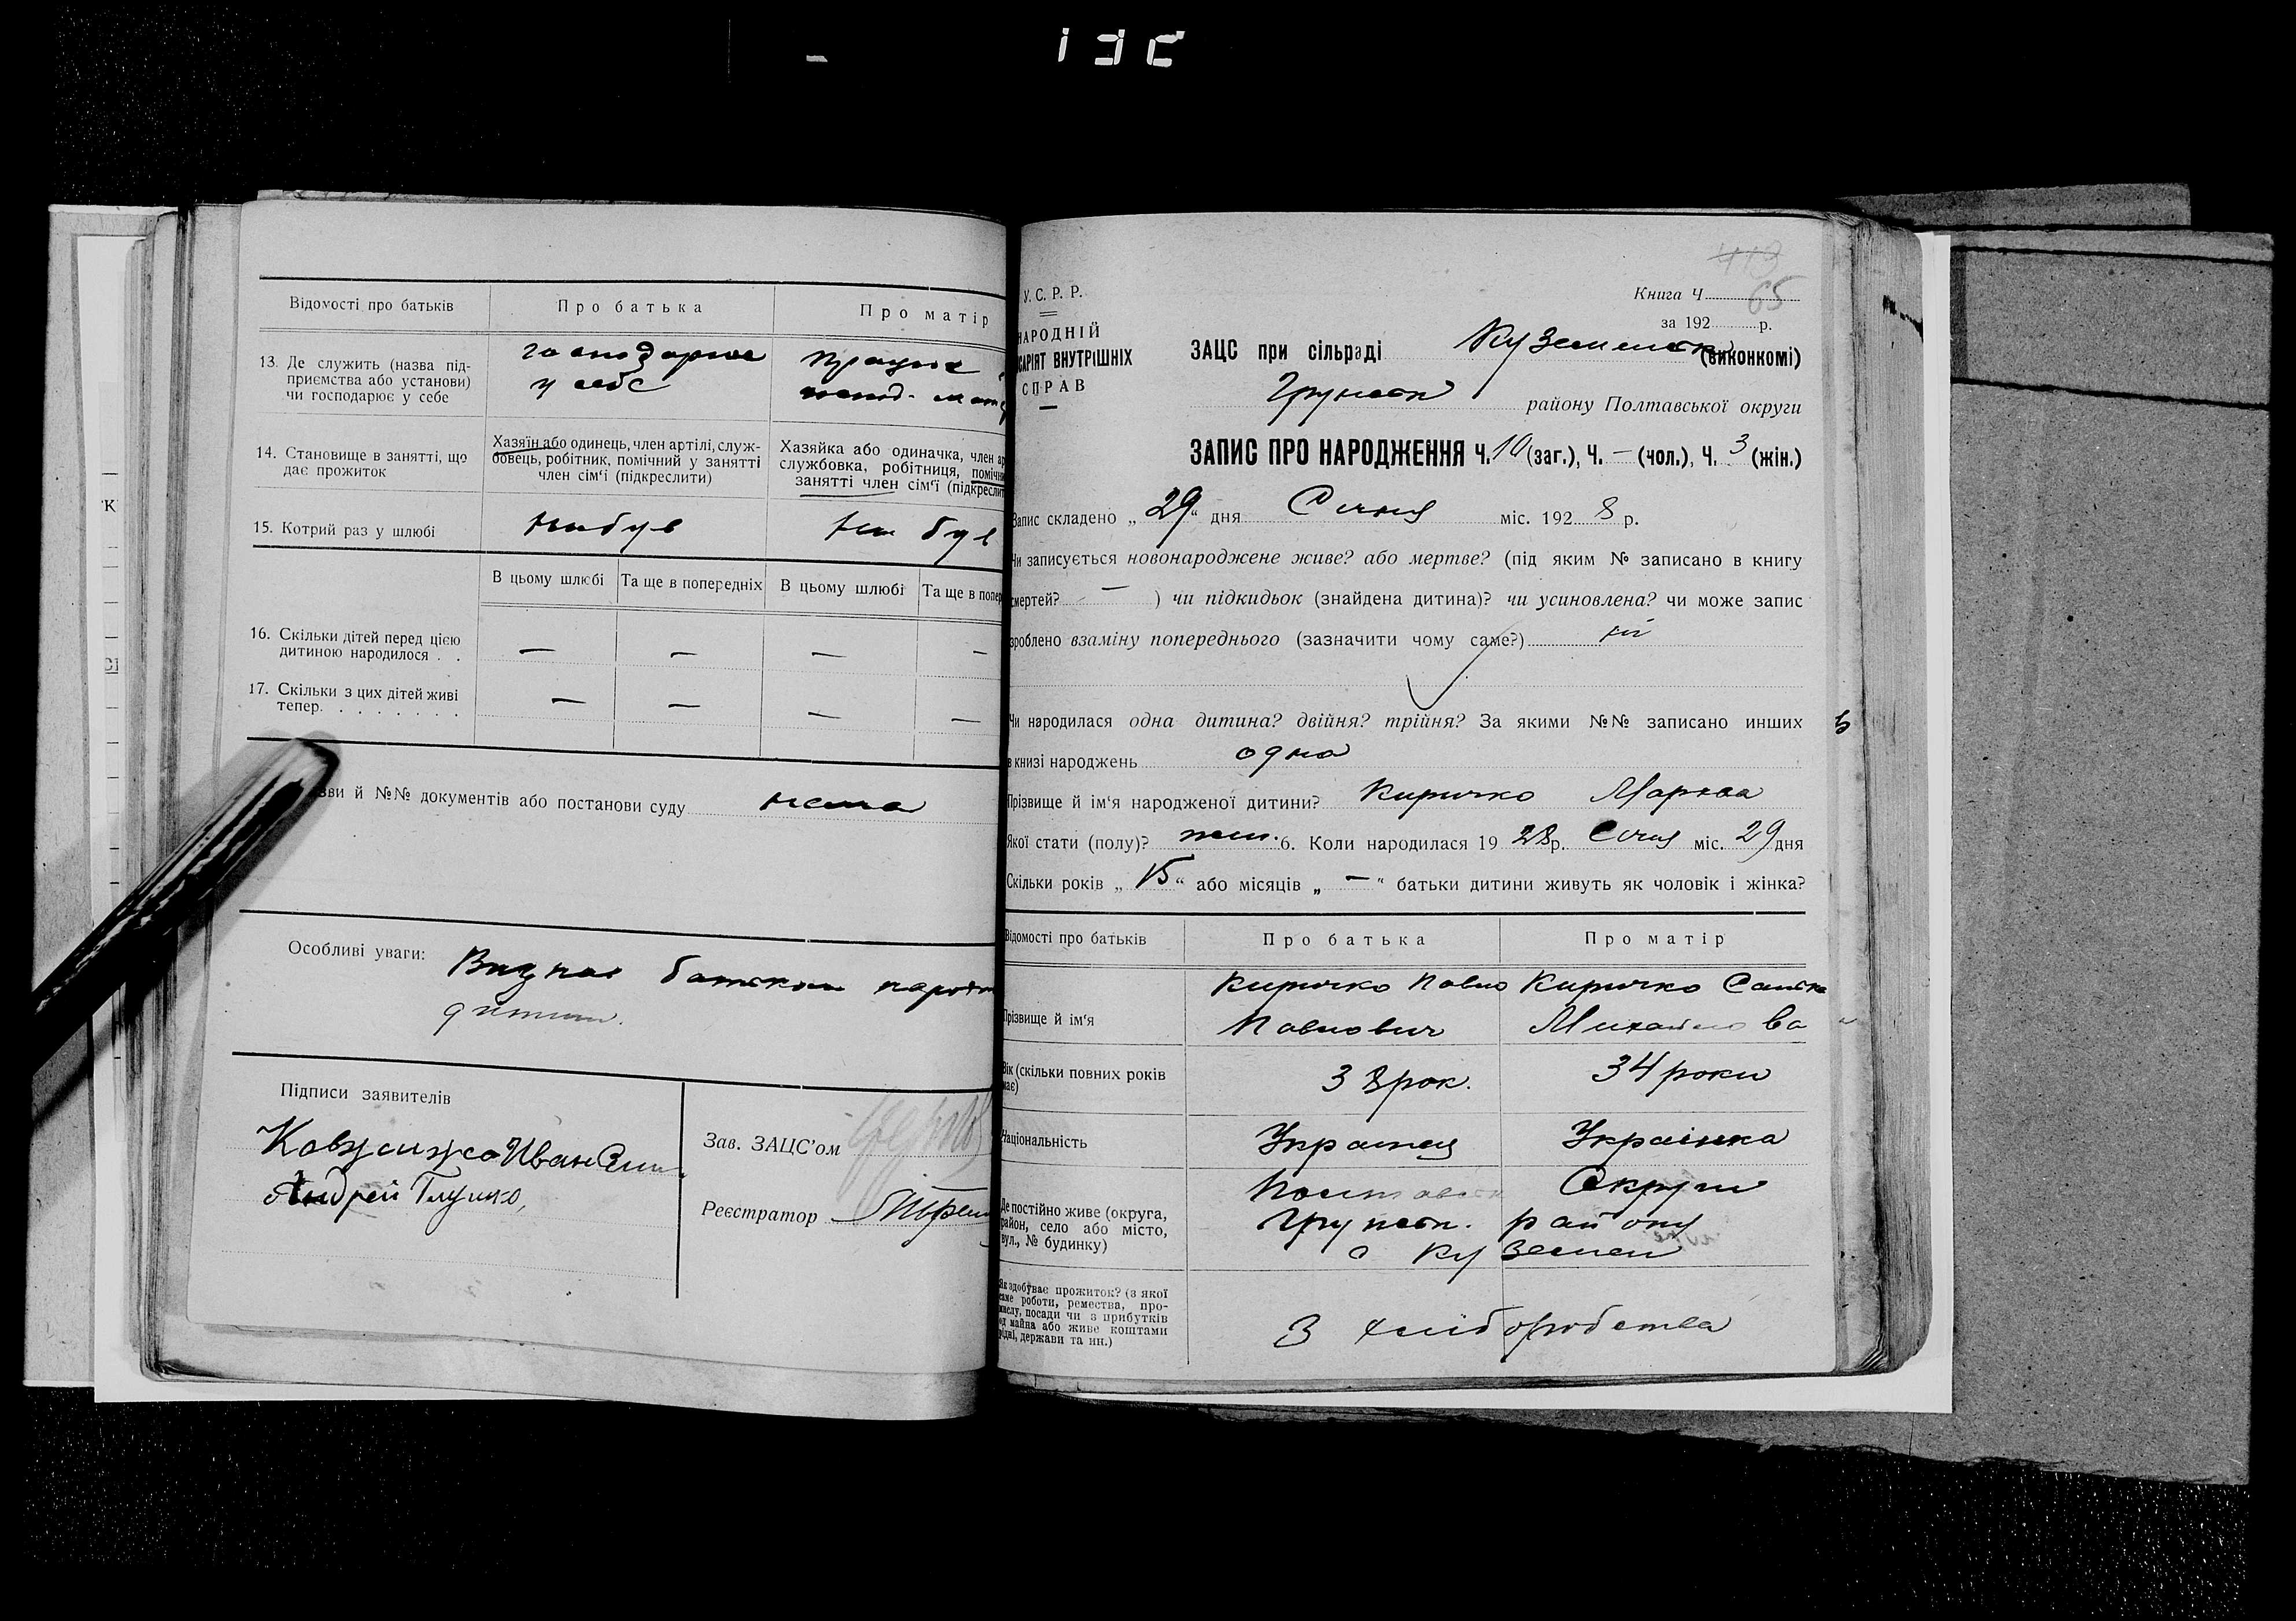 Відомості про батьків
Про батька
Про матір
13. Де служить (назва під-
приємства або установи)
чи господарює у себе
господарює
у себе
працює
14. Становище в занятті, що
дає прожиток
Хазяїн або одинець, член артілі, служ-
бовець, робітник, помічний у занятті
член сім'ї (підкреслити)
Хазяйка або одиначка, член ар
службовка, робітниця, помічн
занятті член сім'ї (підкреслит
15. Котрий раз у шлюбі
В цьому шлюбі
Та ще в попередніх
В цьому шлюбі
Та ще в попер
16. Скільки дітей перед цією
дитиною народилося . .
— — — —
17. Скільки з цих дітей живі
тепер. . . . . . . .
— — — —
зви й №№ документів або постанови суду нема
Особливі уваги:
дитини.
Підписи заявителів
Иван
Андрей Глушко,
Зав. ЗАЦС'ом
Реєстратор
413
65
У. С. Р. Р.
НАРОДНІЙ
САРІЯТ ВНУТРІШНІХ
СПРАВ
Книга Ч
за 192 р.
ЗАЦС при сільраді Куземенськ (виконкомі)
Грунськ району Полтавської округи
ЗАПИС ПРО НАРОДЖЕННЯ Ч. 10 (заг.), Ч. — (чол.), Ч. 3 (жін.)
Запис складено „ 29 “ дня Січня міс. 192 8 р.
Чи записується новонароджене живе? або мертве? (під яким № записано в книгу
смертей? — ) чи підкидьок (знайдена дитина)? чи усиновлена? чи може запис
зроблено взаміну попереднього (зазначити чому саме?) ні
Чи народилася одна дитина? двійня? трійня? За якими №№ записано инших
в книзі народжень одна
Прізвище й ім'я народженої дитини? Киричко
Якої стати (полу)? жін. 6. Коли народилася 19 28 р. Січня міс. 29 дня
Скільки років „ 15 “ або місяців „ — “ батьки дитини живуть як чоловік і жінка?
Відомості про батьків
Про батька
Про матір
Прізвище й ім'я
Киричко Павло
Павлович
Киричко
Михайлова
Вік (скільки повних років
має)
38 рок.
34 роки
Національність
Українець
Українка
Де постійно живе (округа,
район, село або місто,
вул., № будинку)
Полтавськ Округи
Грунськ. району
с Куземен
Як здобуває прожиток? (з якої
саме роботи, ремества, про-
мислу, посади чи з прибутків
од майна або живе коштами
рідні, держави та ин.)
З хліборобства